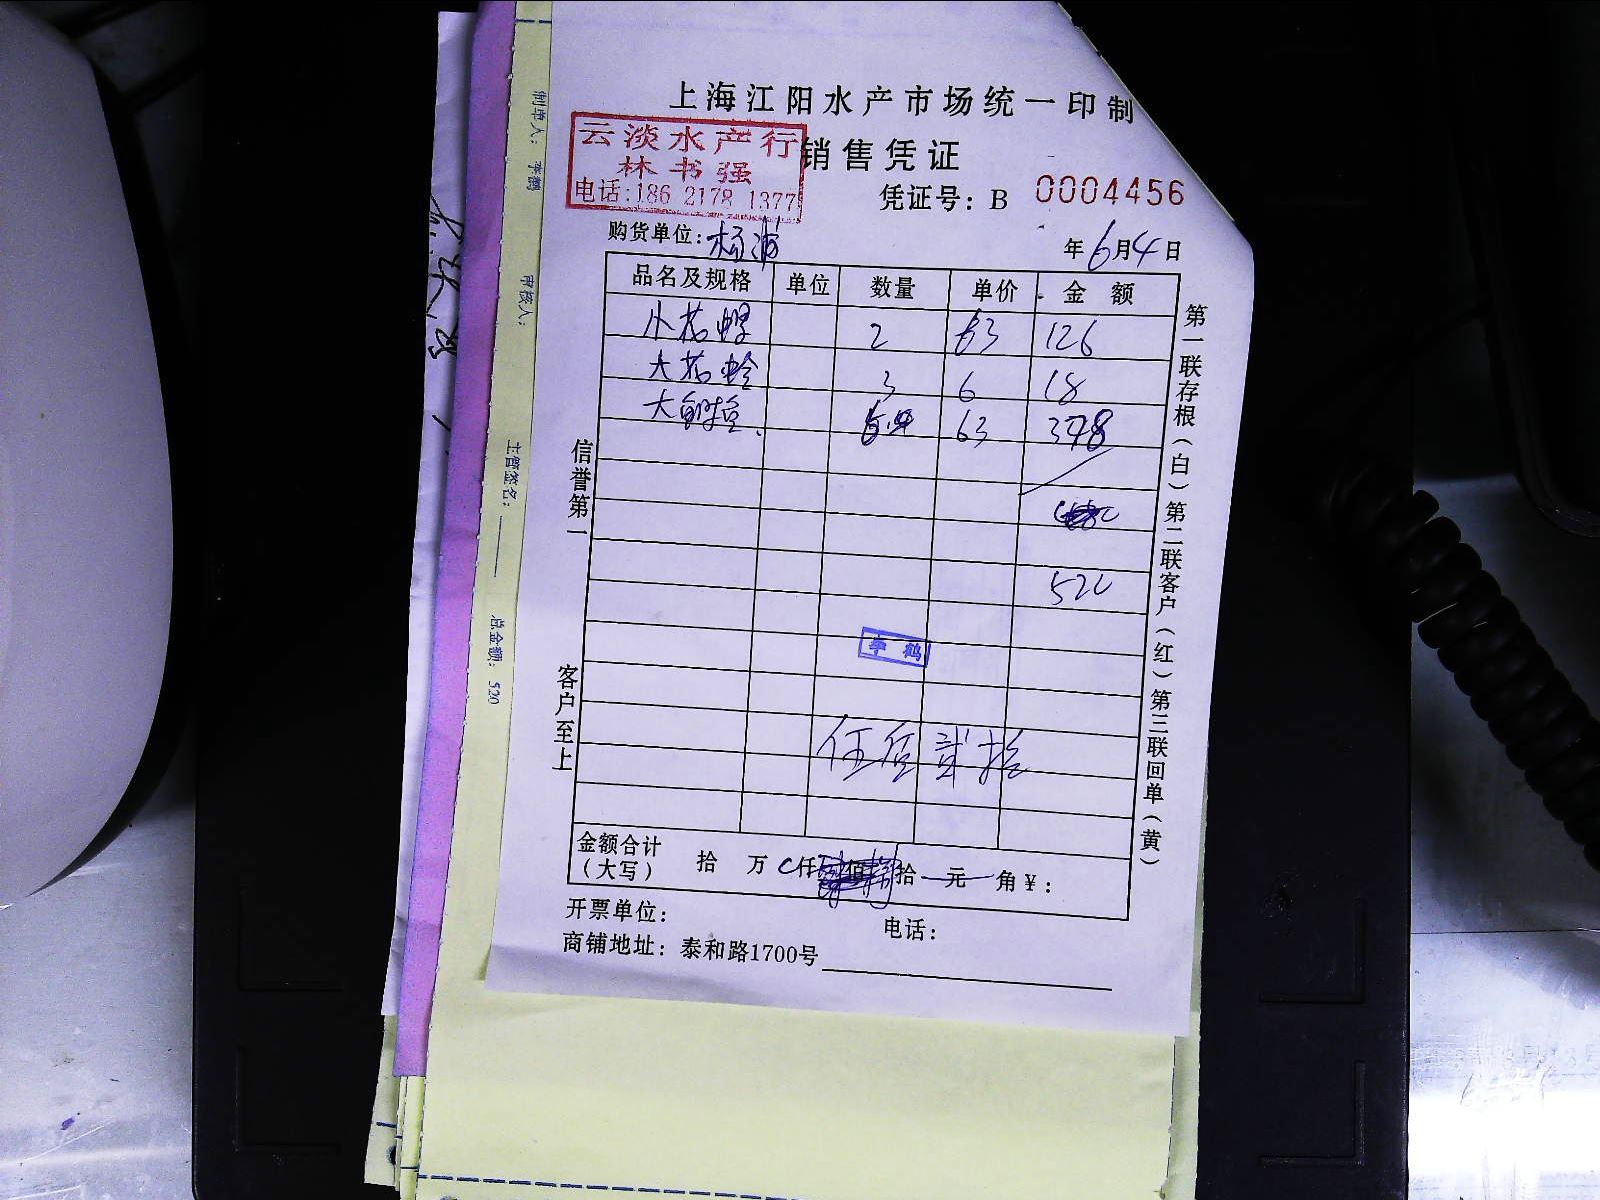 上海江阳水产市场统一印制
销售凭证
云淡水产行
林书强
电话:186 2178 1377
凭证号: B 0004456
购货单位: 杨浦
年6月4日
品名及规格 单位 数量 单价 金额
小花 2 63 126
大花蛤 3 6 18
大 63 378
520
李鹤
伍佰贰拾
金额合计
(大写) 拾 万 仟 佰 拾 元 角 ¥:
开票单位:
电话:
商铺地址: 泰和路1700号
信誉第一
客户至上
第一联存根(白) 第二联客户(红) 第三联回单(黄)
制单人: 李鹤
审核人:
主管签名:
总金额: 520